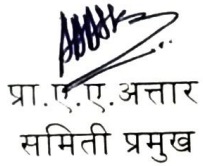 प्रा.ए.ए.अत्तार
समिती प्रमुख